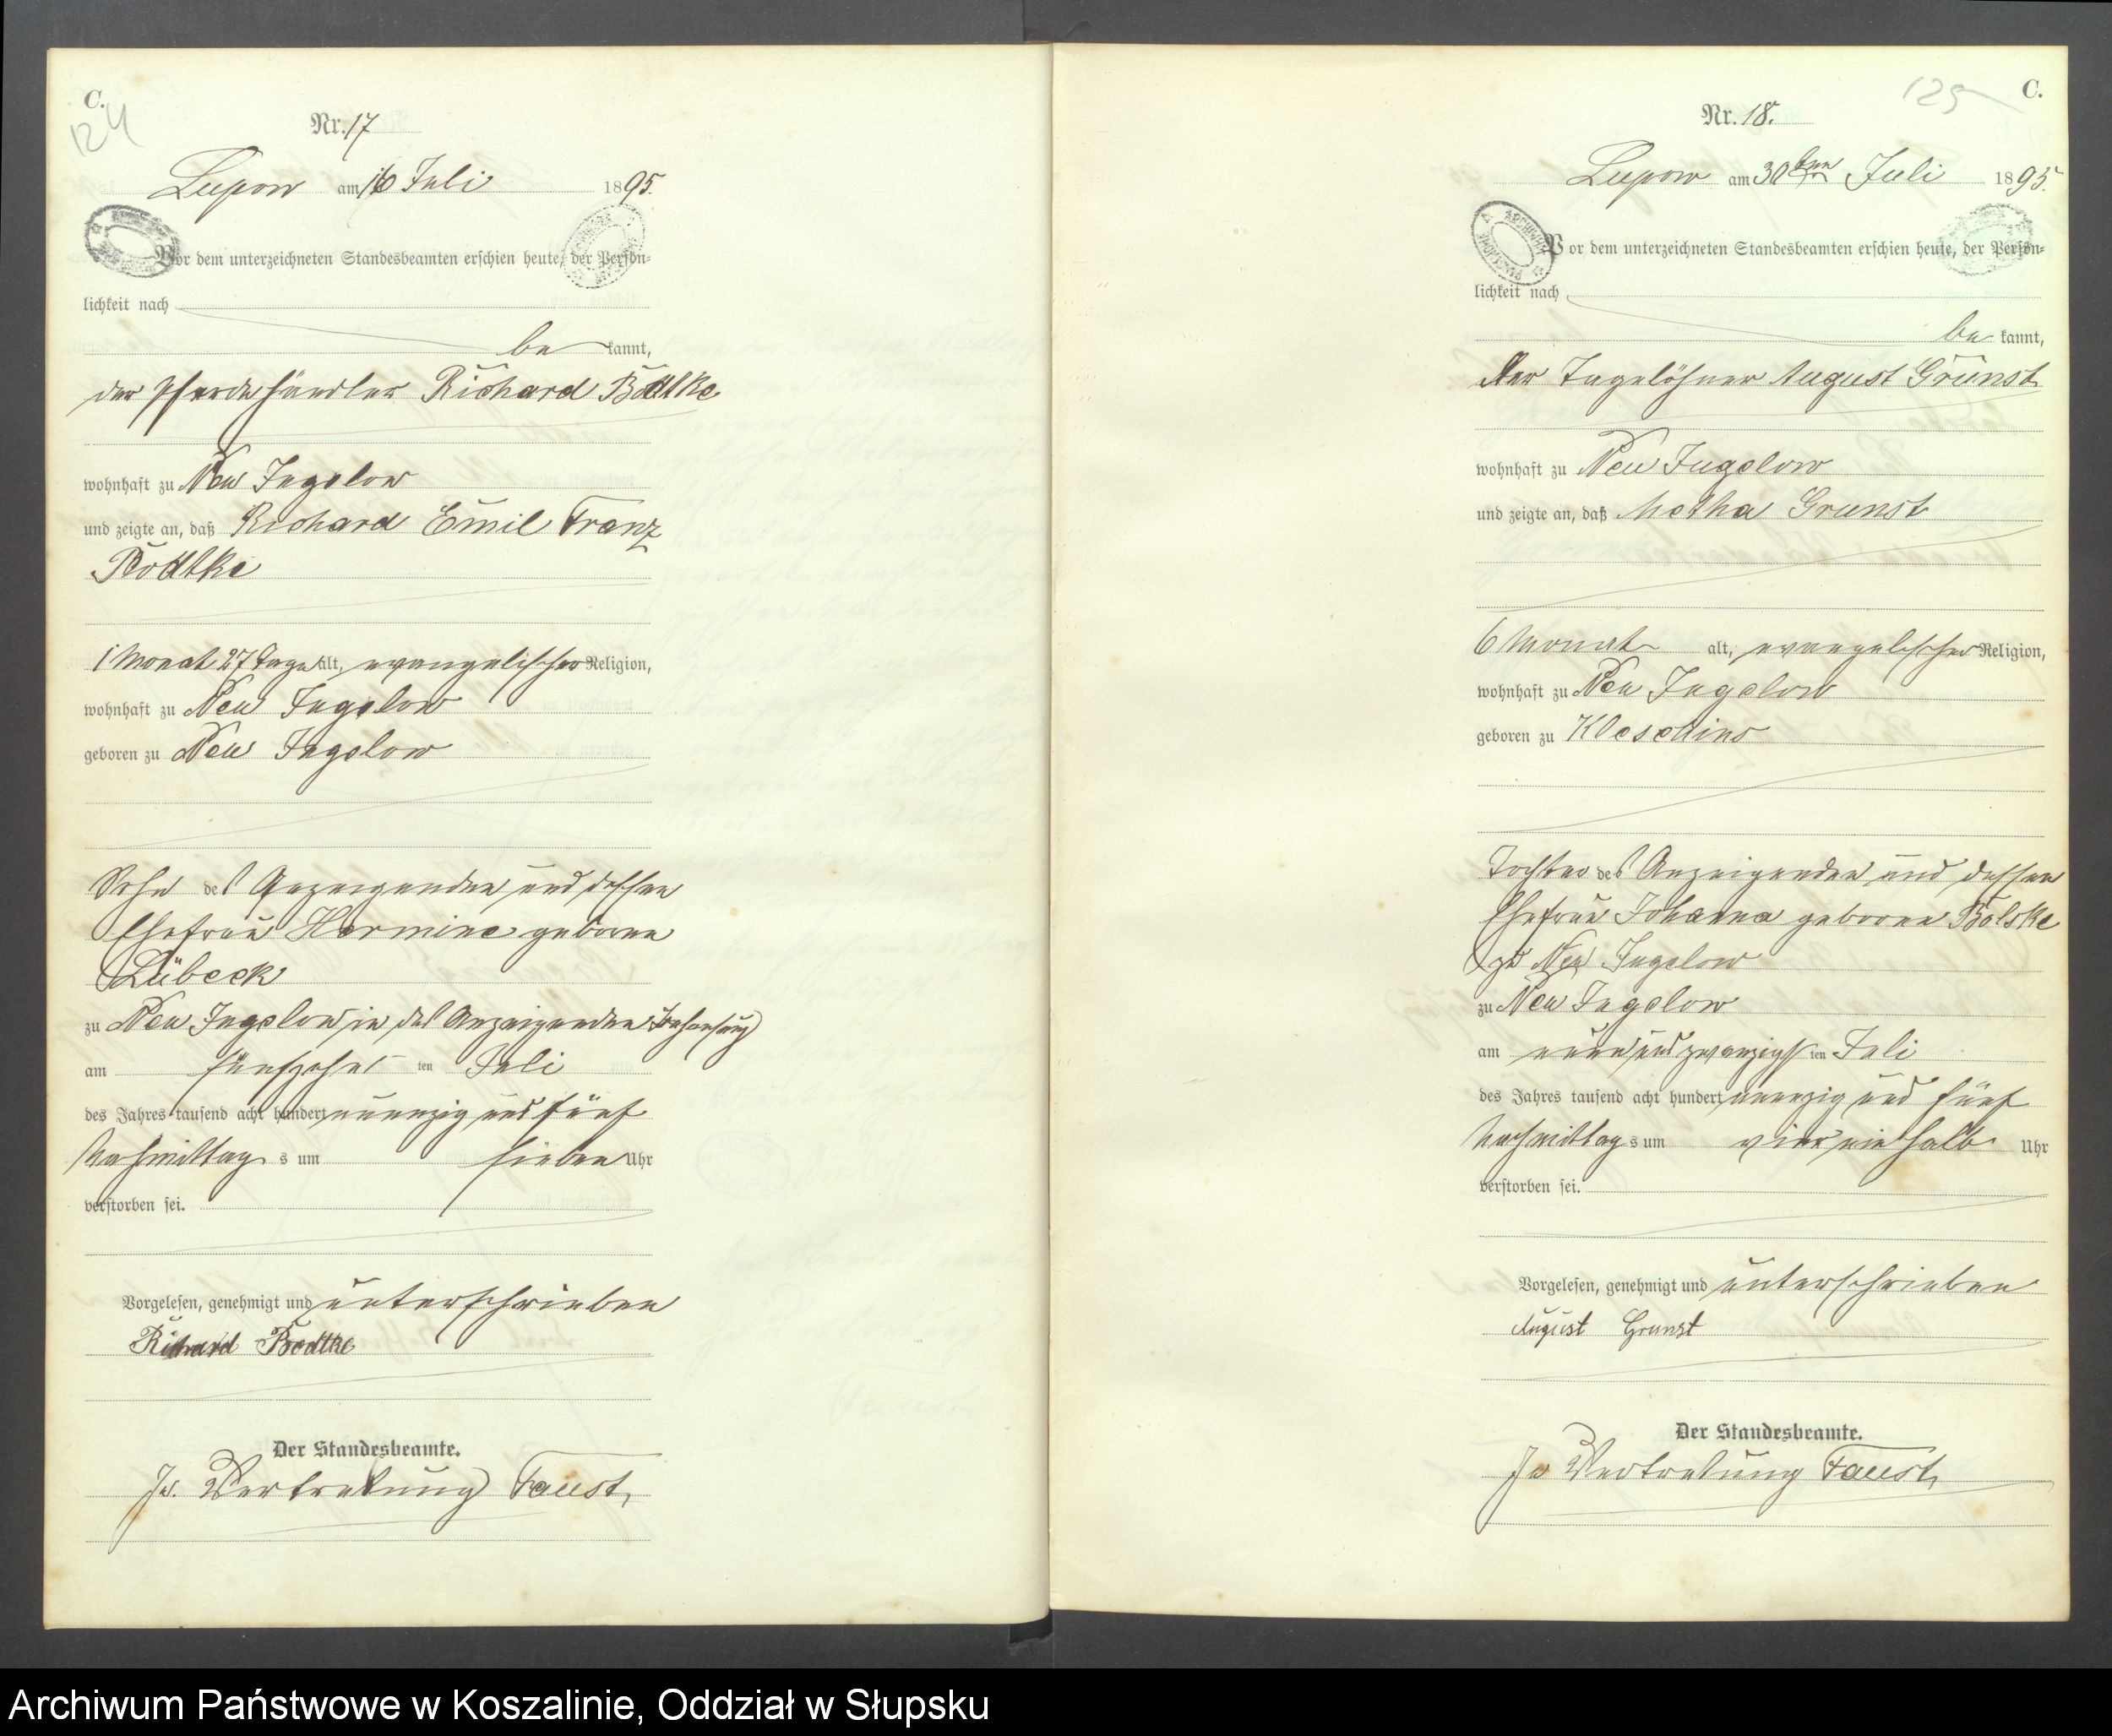 C.
124
Nr. 17
Lupow am 16 Juli 1895.
Vor dem unterzeichneten Standesbeamten erschien heute, der Persön-
lichkeit nach
be kannt,
der Pferdehändler Richard Bödtke
wohnhaft zu Neu Jugelow
und zeigte an, daß Richard Emil Franz
Bödtke
1 Monat 27 Tage alt, evangelischer Religion,
wohnhaft zu Neu Jugelow
geboren zu Neu Jugelow
Sohn des Anzeigenden und dessen
Ehefrau Hermine geborene
Lübeck
zu Neu Jugelow in des Anzeigenden Behausung
am fünfzehnten Juli
des Jahres tausend acht hundert neunzig und fünf
Nachmittags um sieben Uhr
verstorben sei.
Vorgelesen, genehmigt und unterschrieben
Richard Bodtke
Der Standesbeamte.
In Vertretung Faust.
125
C.
Nr. 18.
Lupow am 30ten Juli 1895.
Vor dem unterzeichneten Standesbeamten erschien heute, der Persön-
lichkeit nach
be kannt,
Der Tagelöhner August Grunst
wohnhaft zu Neu Jugelow
und zeigte an, daß Grunst
6 Monat alt, evangelischer Religion,
wohnhaft zu Neu Jugelow
geboren zu
Tochter des Anzeigenden und dessen
Ehefrau Johanna geborene
zu Neu Jugelow
zu Neu Jugelow
am neunundzwanzigsten Juli
des Jahres tausend acht hundert neunzig und fünf
Nachmittags um vier einhalb Uhr
verstorben sei.
Vorgelesen, genehmigt und unterschrieben
August Grunst
Der Standesbeamte.
In Vertretung Faust
Archiwum Państwowe w Koszalinie, Oddział w Słupsku